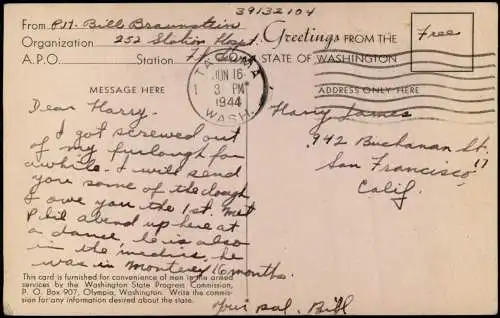 39132104
From Pvt. Bill Braunstein
Organization 252 Station Hospt.
A.P.O. Station Ft. Lewis
Greetings FROM THE
STATE OF WASHINGTON
Free
TACOMA
JUN 16
1 3 PM
1944
WASH.
MESSAGE HERE
ADDRESS ONLY HERE
Dear Harry,
I got screwed out
of my furlough for
awhile. I will send
you some of the dough
I owe you the 1st. Met
Phil abend up here at
a dance, he is also
in the medics, he
was in Monterey 16 months.
Your pal. Bill
Harry James
942 Buchanan St.
San Francisco, 17
Calif.
This card is furnished for convenience of men in the armed
services by the Washington State Progress Commission,
P. O. Box 907, Olympia, Washington. Write the commis-
sion for any information desired about the state.